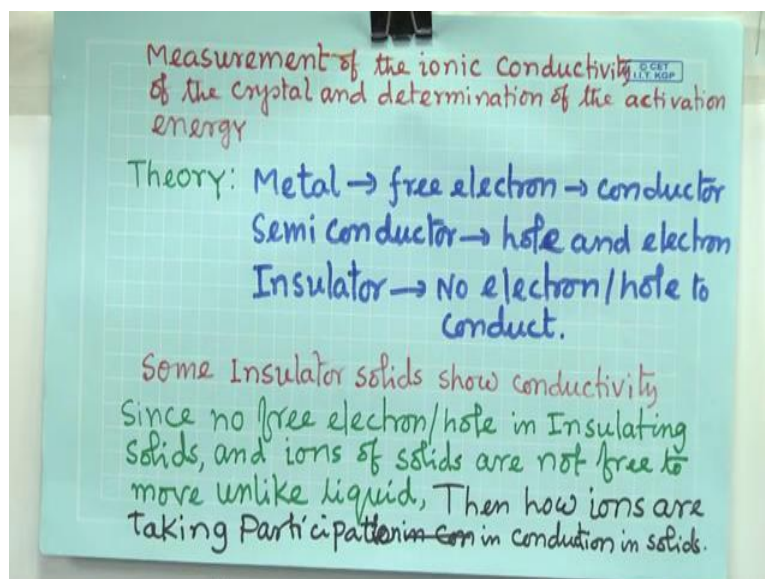 Measurement of the ionic conductivity
© CET
I.I.T. KGP
of the crystal and determination of the activation
energy
Theory: Metal → free electron → conductor
Semi conductor → hole and electron
Insulator → No electron/hole to
conduct.
Some Insulator solids show conductivity
Since no free electron/hole in Insulating
solids, and ions of solids are not free to
move unlike liquid, Then how ions are
taking Participat in conduction in solids.